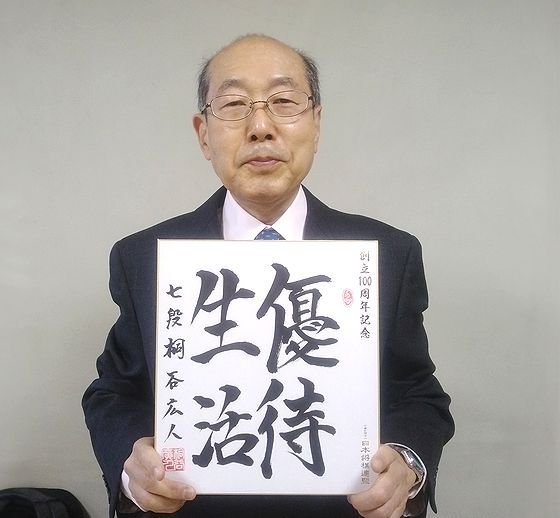 創立100周年記念
優待
生活
七段桐谷広人
日本将棋連盟